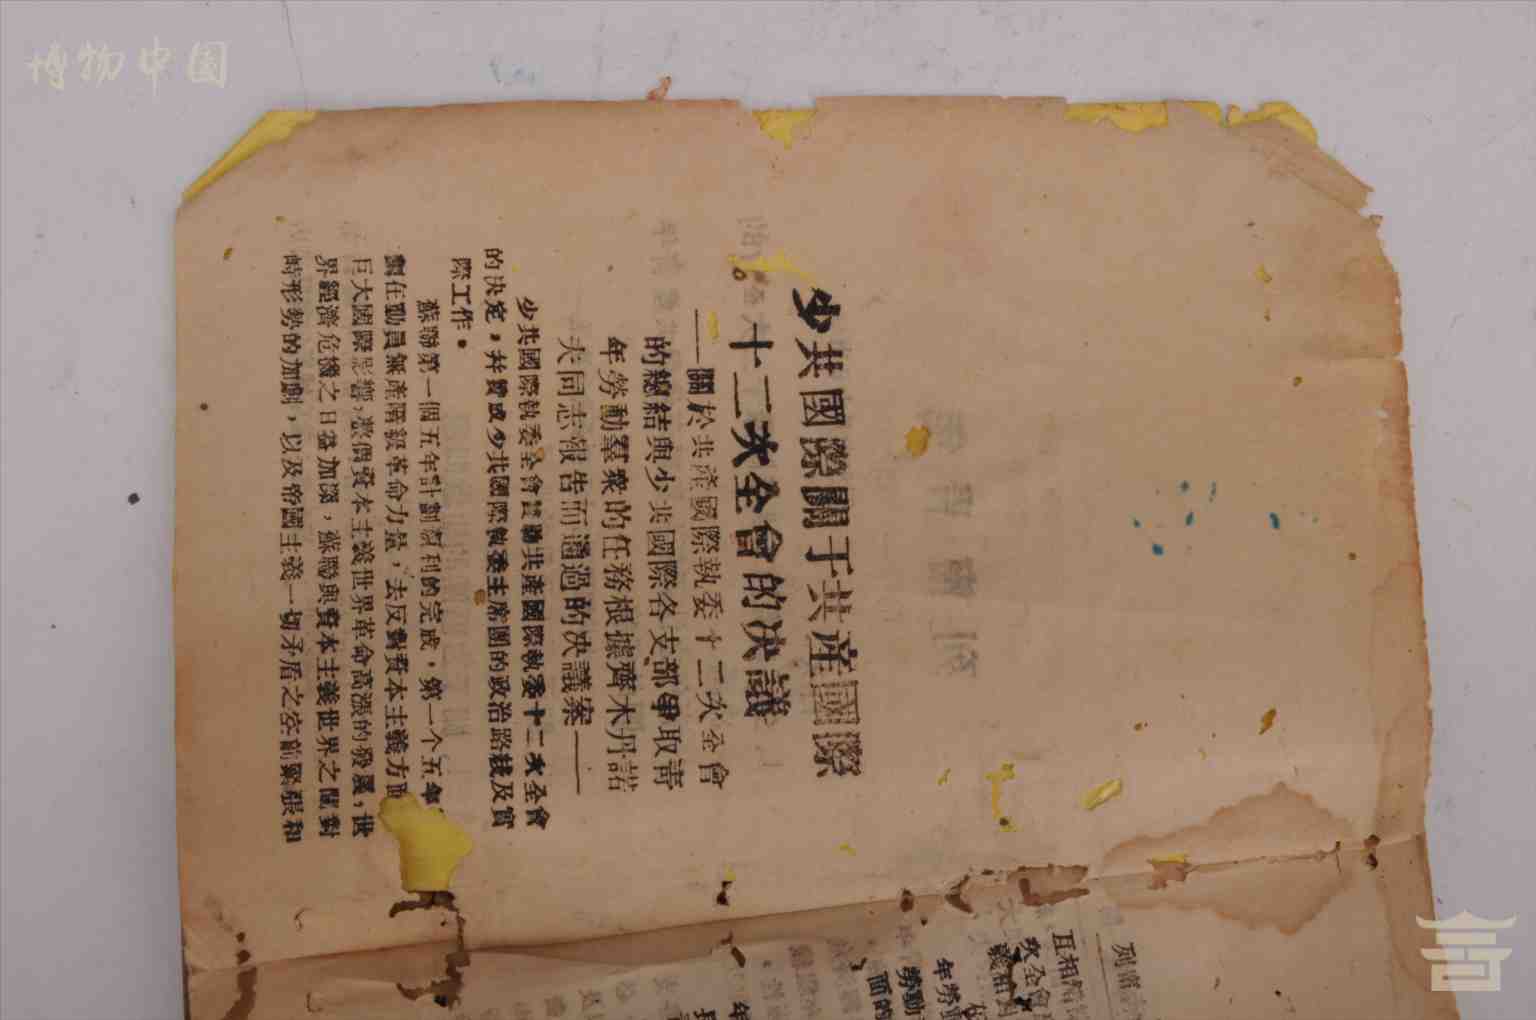 博物中国
少共國際關于共產國際
十二次全會的决議
——關於共產國際執委十二次全會
的總結與少共國際各支部爭取靑
年勞動羣衆的任務根據齊木丹諾
夫同志報告而通過的决議案——
少共國際執委全會贊助共產國際執委十二次全會
的决定，幷贊成少共國際執委主席團的政治路綫及實
際工作。
蘇聯第一個五年計劃勝利的完成，第一个五年
劃在動員無產階級革命力量，去反對資本主義方面
巨大國際影響，整個資本主義世界革命高漲的發展，世
界經濟危機之日益加深，蘇聯與資本主義世界之間對
峙形勢的加劇，以及帝國主義一切矛盾之空前緊張和
列
互相
次全會
義相
年勞
勞動
面的
年